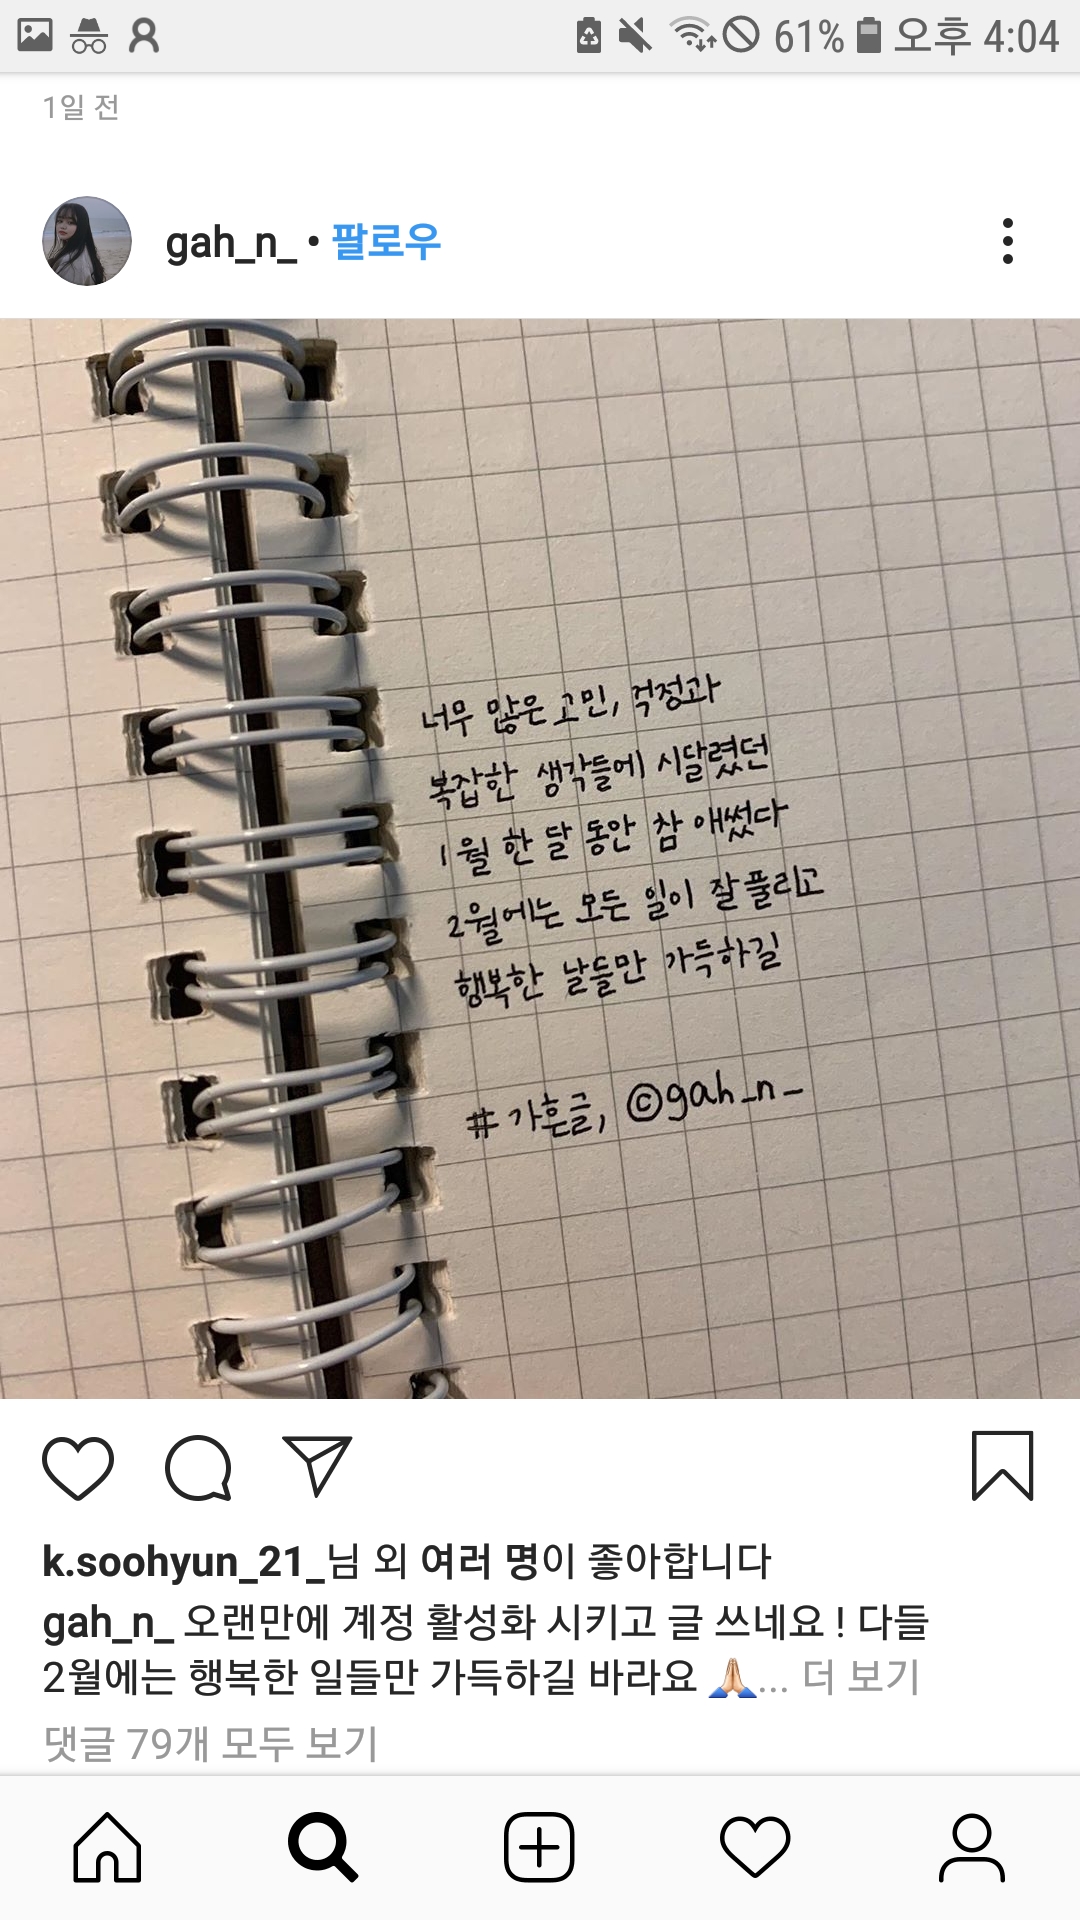 61% 오후 4:04
1일 전
gah_n_ • 팔로우
너무 많은 고민, 걱정과
복잡한 생각들에 시달렸던
1월 한 달 동안 참 애썼다
2월에는 모든 일이 잘 풀리고
행복한 날들만 가득하길
#가흔글, ©gah_n_
k.soohyun_21_님 외 여러 명이 좋아합니다
gah_n_ 오랜만에 계정 활성화 시키고 글 쓰네요 ! 다들
2월에는 행복한 일들만 가득하길 바라요 🙏🏻... 더 보기
댓글 79개 모두 보기